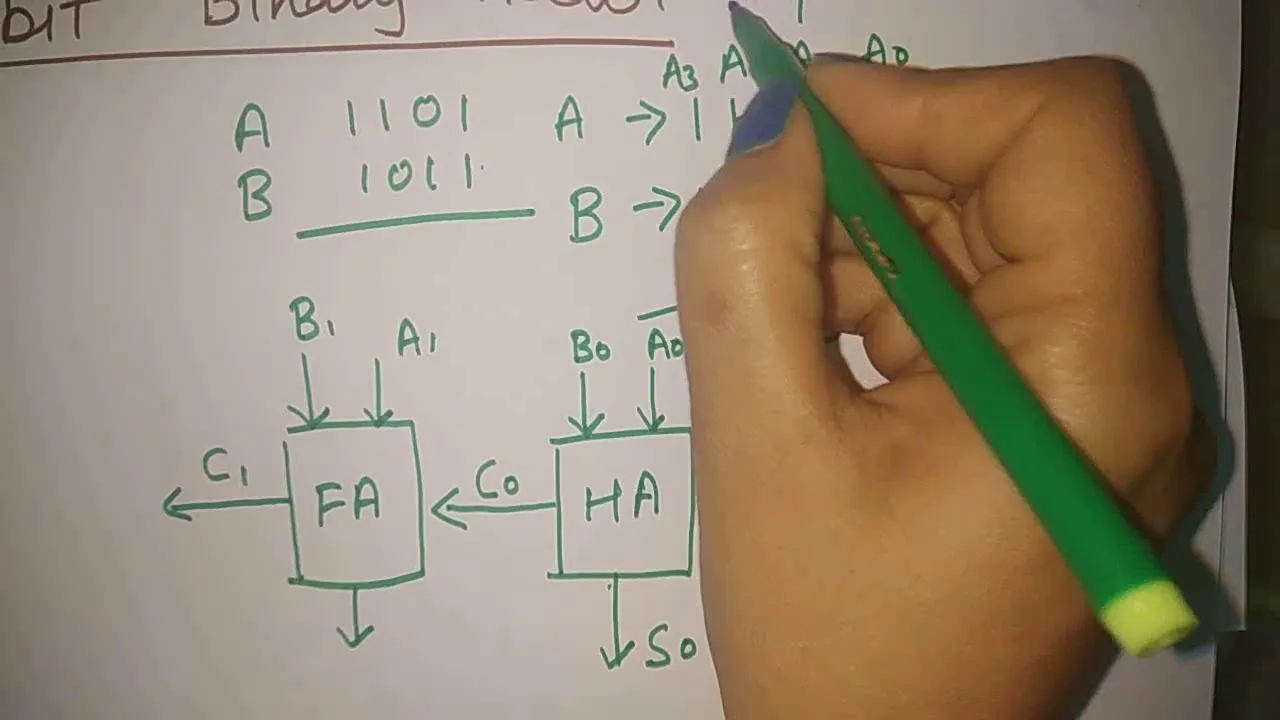 bit Binary
A3 A A A0
A 1101 A → 1 1
B 1011 B →
B1 A1 B0 A0
C1 FA C0 HA
S0